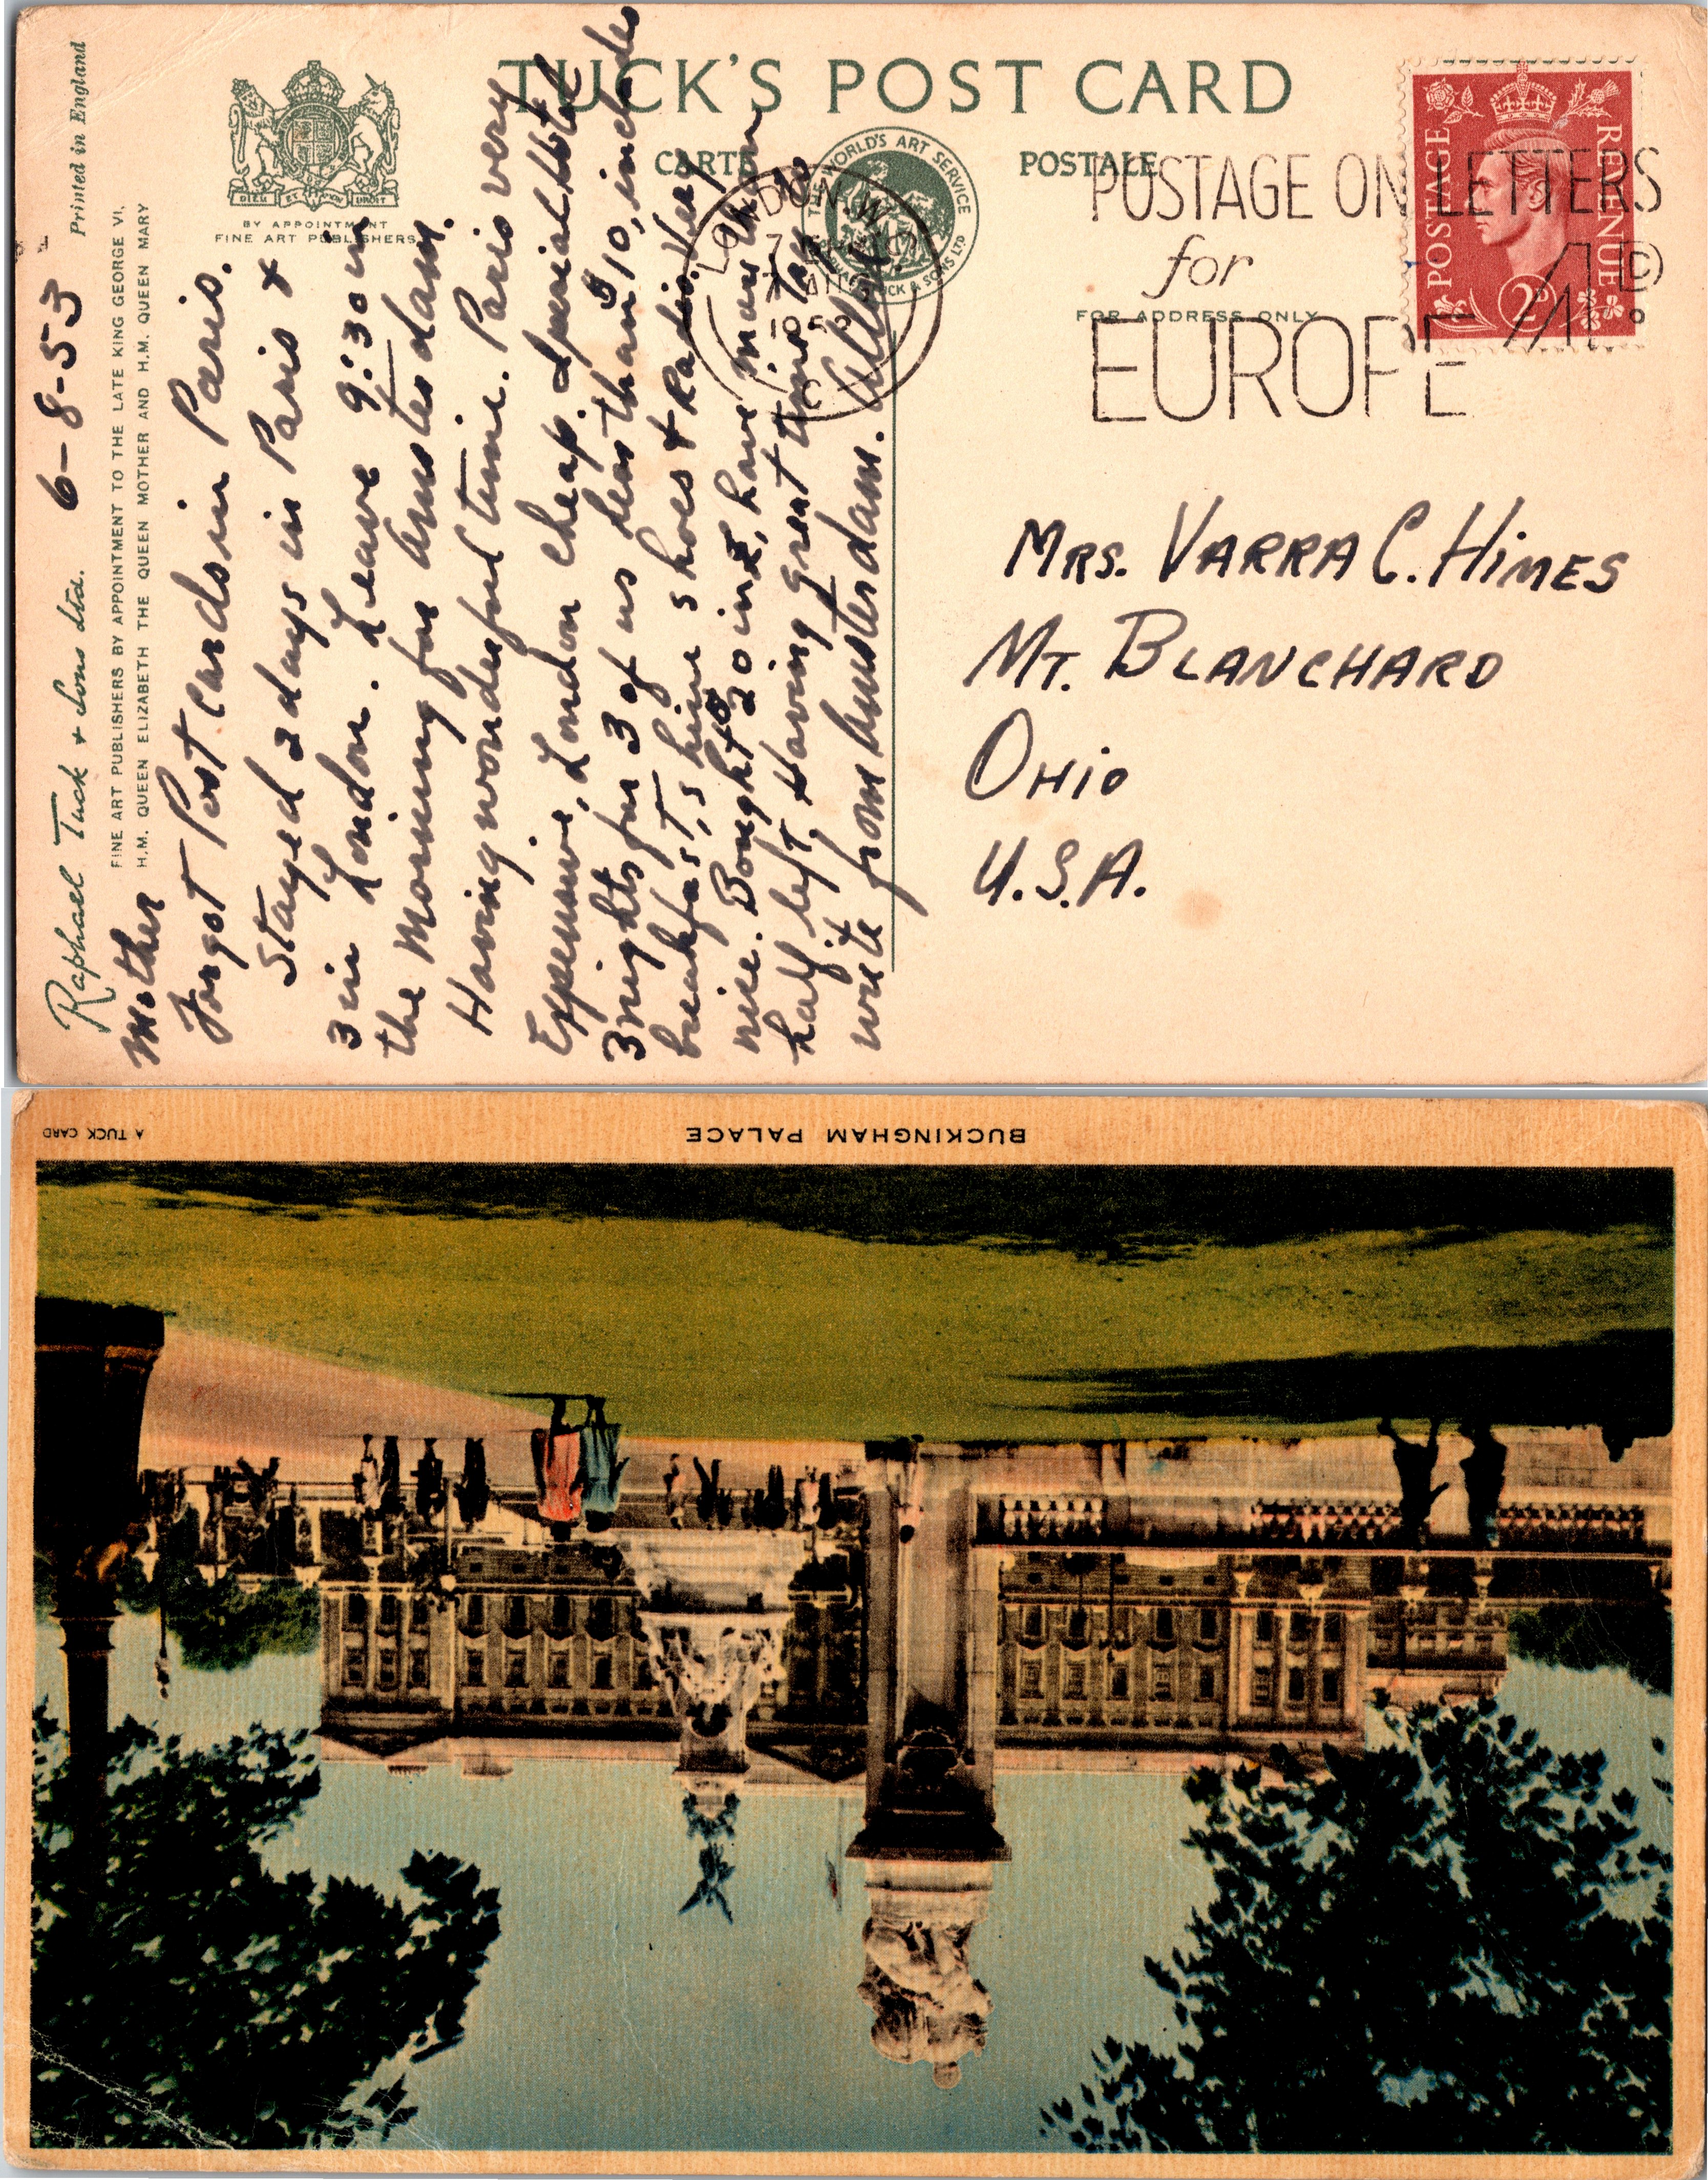 TUCK'S POST CARD
CARTE POSTALE
BY APPOINTMENT
FINE ART PUBLISHERS
DIEU ET MON DROIT
THE WORLD'S ART SERVICE
RAPHAEL TUCK & SONS LTD
FOR ADDRESS ONLY
POSTAGE REVENUE
2D
LONDON. W.
7
1953
POSTAGE ON LETTERS
for
EUROPE 4D
MRS. VARRA C. HIMES
MT. BLANCHARD
OHIO
U.S.A.
Raphael Tuck & Sons Ltd. 6-8-53 Printed in England
FINE ART PUBLISHERS BY APPOINTMENT TO THE LATE KING GEORGE VI,
H.M. QUEEN ELIZABETH THE QUEEN MOTHER AND H.M. QUEEN MARY
Mother
Forgot Post cards in Paris.
Stayed 2 days in Paris &
3 in London. Leave 9:30 in
the Morning for Amsterdam.
Having wonderful time. Paris very
Expensive, London cheap. Imperial Hotel
3 nights for 3 of us less than $10, includes
breakfast, shine shoes & Radio. Very
nice. Bought $20 in £, have more than
half left. Having great time. Try to
write from Amsterdam.
BUCKINGHAM PALACE
A TUCK CARD